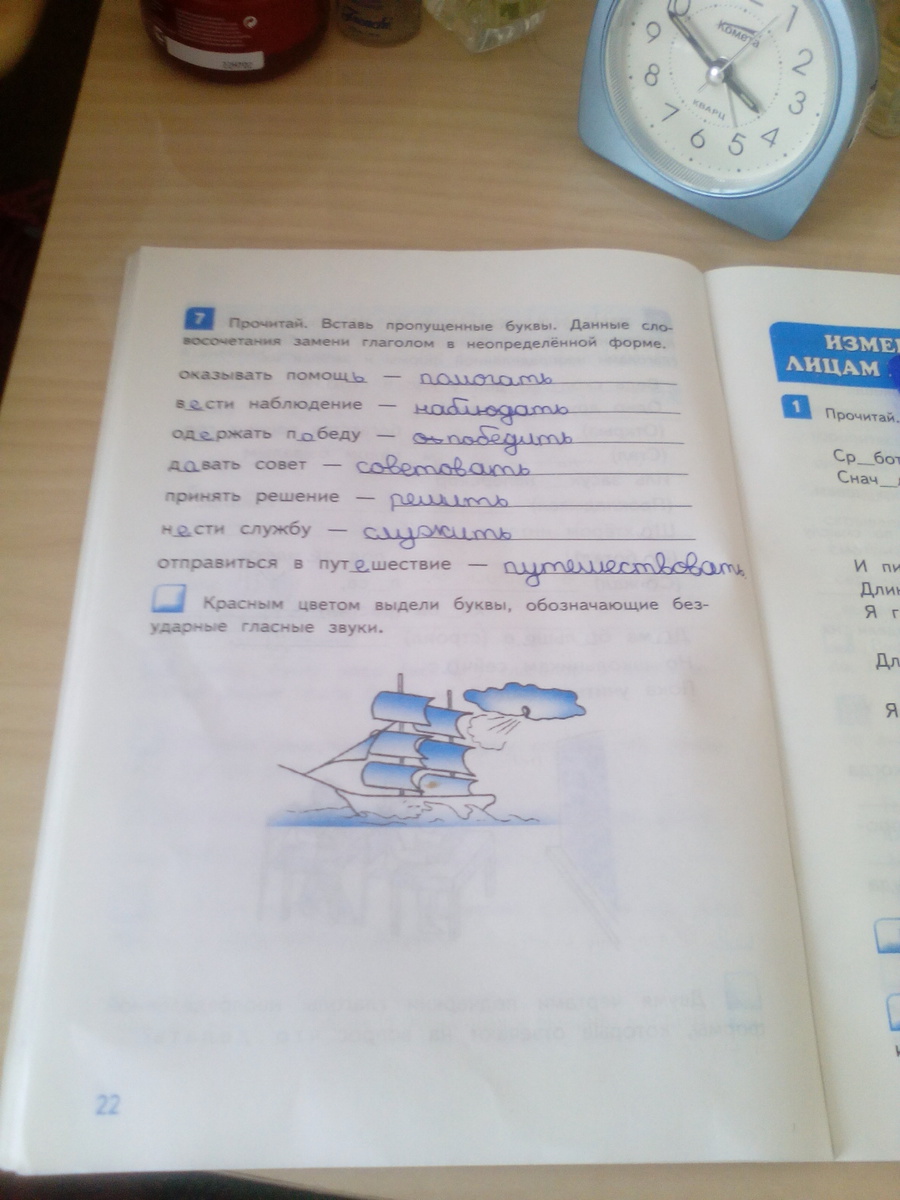 1
2
3
4
5
6
7
8
9
Комета
КВАРЦ
7 Прочитай. Вставь пропущенные буквы. Данные сло-
восочетания замени глаголом в неопределённой форме.
оказывать помощь — помогать
вести наблюдение — наблюдать
одержать победу — победить
давать совет — советовать
принять решение — решить
нести службу — служить
отправиться в путешествие — путешествовать
Красным цветом выдели буквы, обозначающие без-
ударные гласные звуки.
22
ИЗМЕ
ЛИЦАМ
1 Прочитай.
Ср_бот
Снач_
И пи
Длин
Я г
Дл
Я